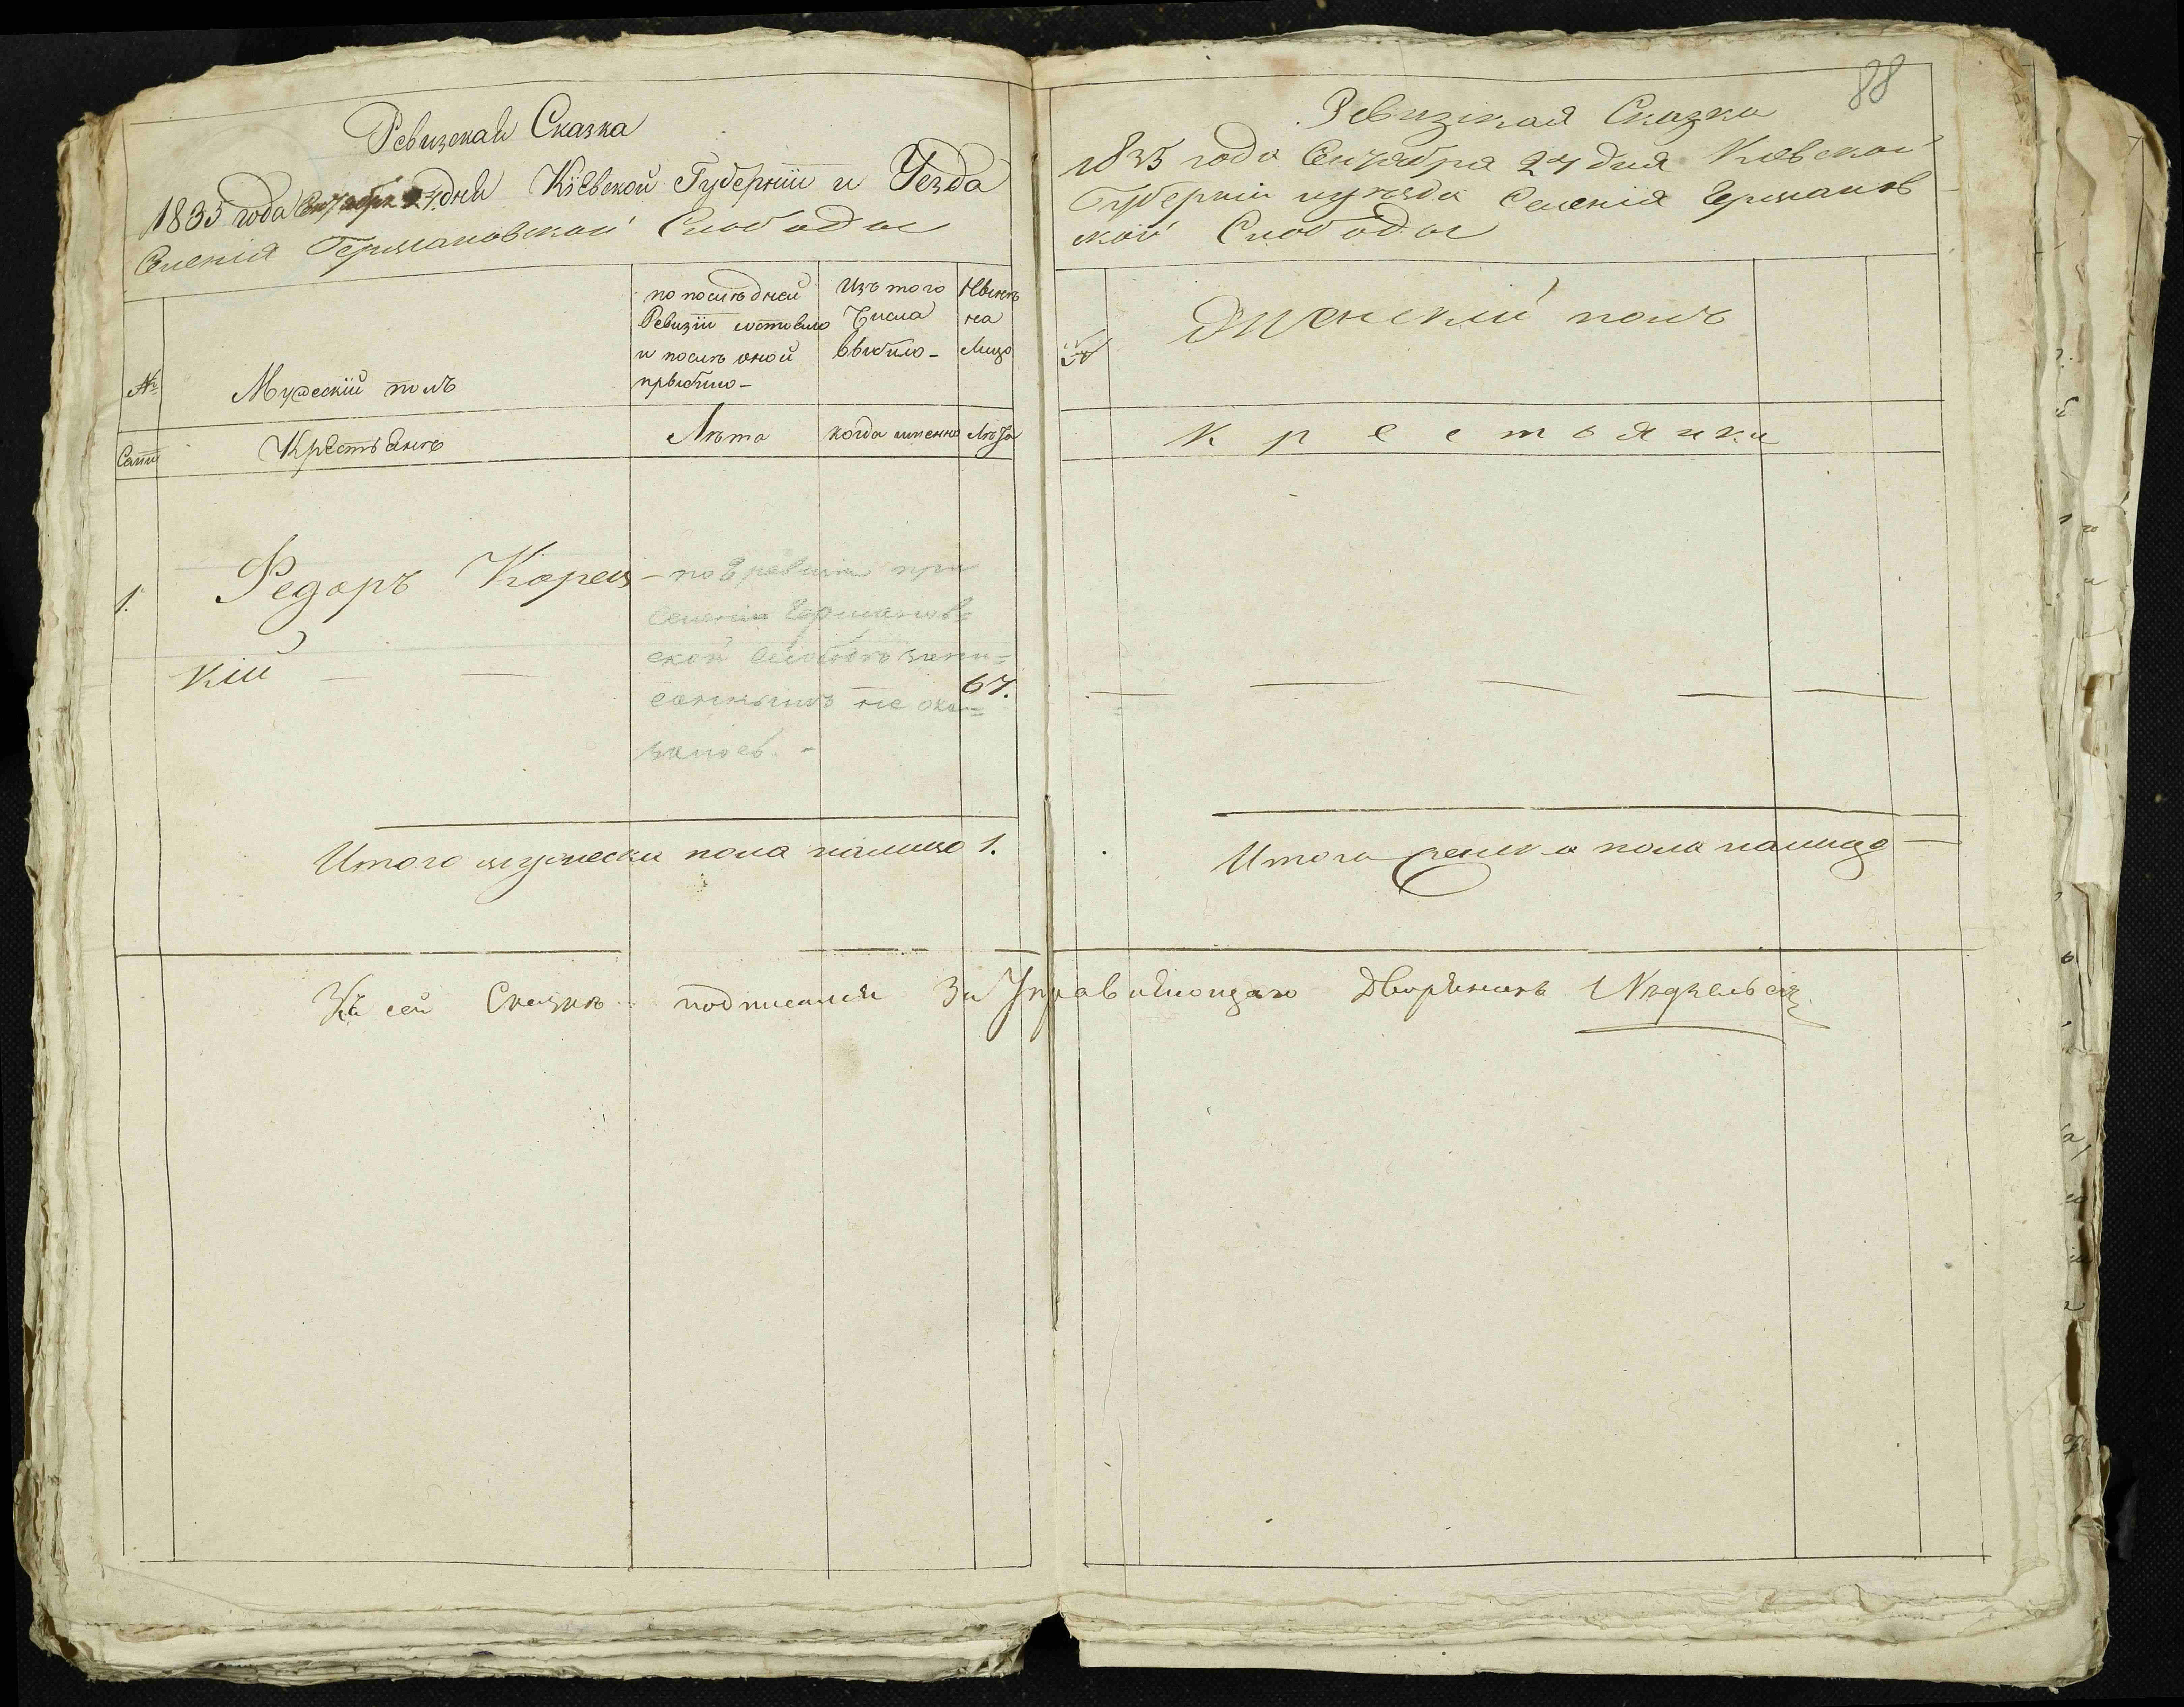 Ревизская Сказка
1835 года Сентября 27. дня Кіевской Губерніи и Уезда
Селенія Германовской Слободы
№
Мужескій полъ
по последней
Ревизіи состояло
и после оной
прыбыло-
Изъ того
Числа
выбыло-
Нынѣ
на
Лицо
Семи
Крестьяне
Лѣта
когда именно
Лѣта
1.
Федоръ Корец-
кій
67.
по 8 ревизіи при
селеніи Германов-
ской Слободѣ запи=
саннымъ не ока=
залось. -
Итого мужеска пола налицо 1.
88
Ревизкая Сказка
1835 года Сентября 27 дня Киевской
Губерніи иуѣзда Селенія Германов
ской Слободы
№
Женскій полъ
Крестьянки
Итого женска пола налицо —
Къ сей Сказкѣ подписался За Управляющаго Дворянинъ